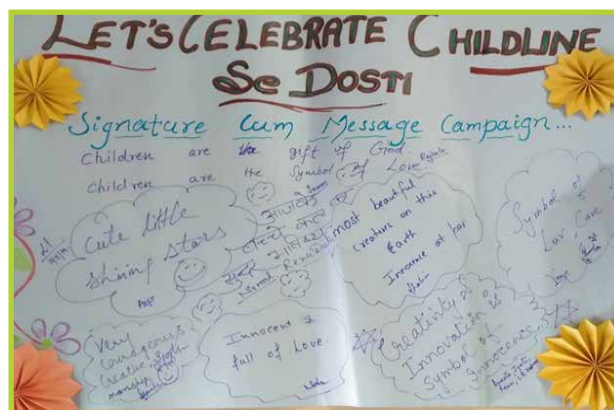 LET'S CELEBRATE CHILDLINE
Se DOSTI
Signature Cum Message Campaign...
Children are the gift of God.
Children are the Symbol of Love
Cute little
shining stars
आज के
बच्चे कल का
सुन्दर भविष्य
most beautiful
creature on this
Earth
Innocence at par
Symbol of
Luv Care
Very
Courageous
Creative
Innocent &
full of Love.
Creativity &
Innovation is
Symbol of
Innocence.